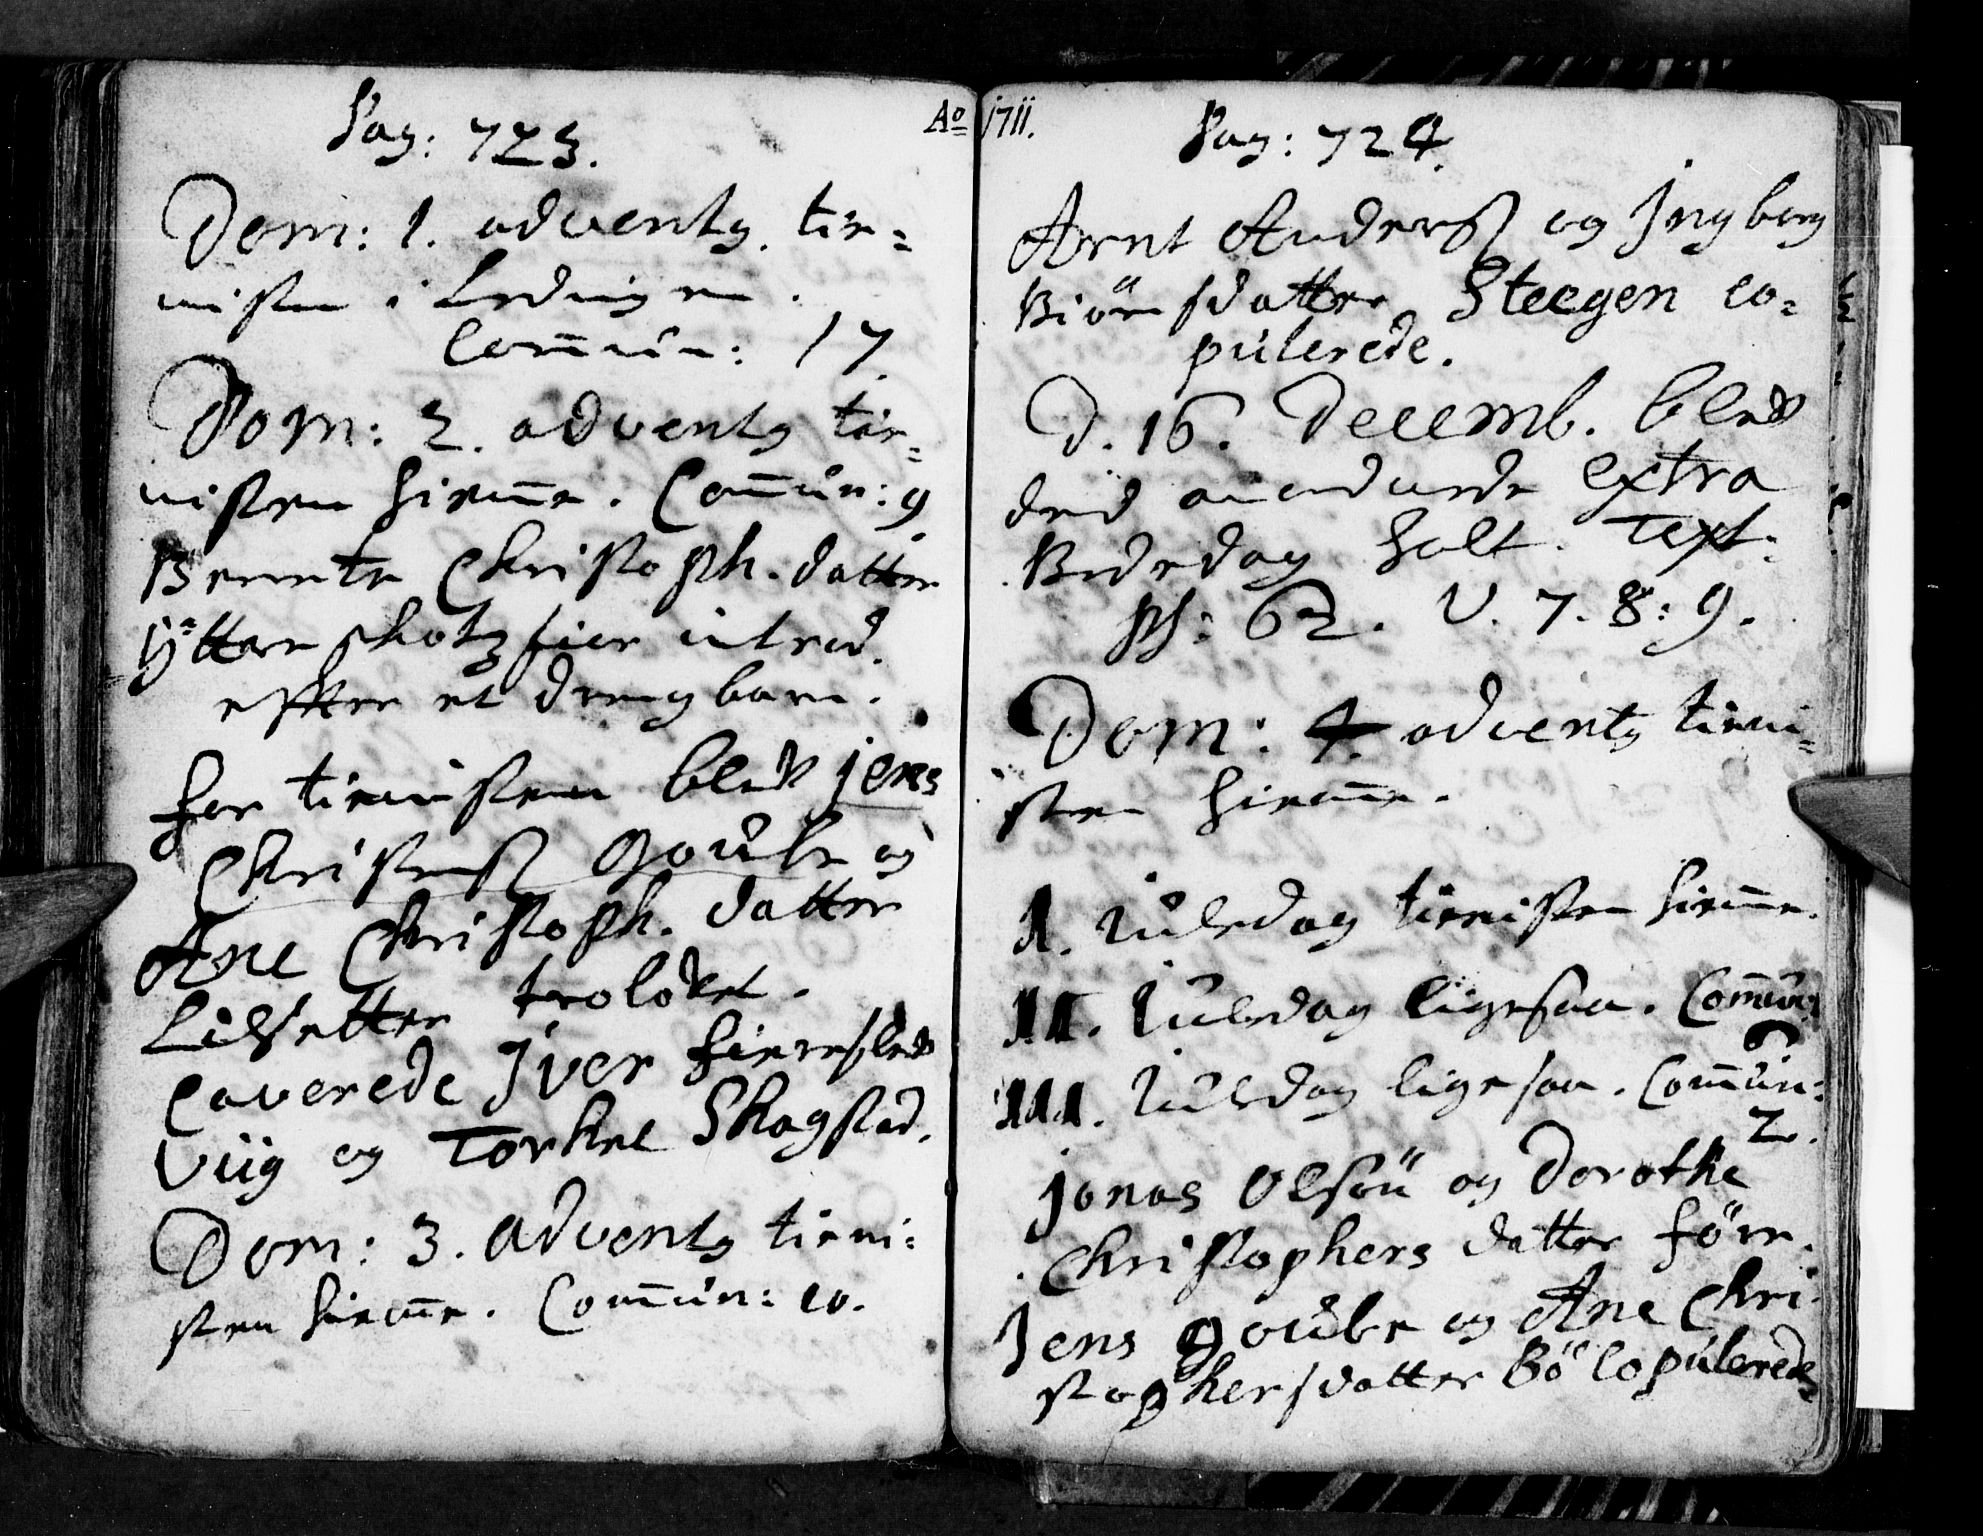 Pag: 723.
Dom: 1. adventg. tie-
nisten i Lødingen.
Com̄ŭn: 17
Dom: 2. adventg tie-
nisten hiem̄e. Com̄ŭn: 9
Berrete Christoph. datter
Ÿttere skotzfier introd.
efter et drengbarn.
for tienisten blef jens
Christenß Goŭbe og
Ane Christoph. datter
trolofvet.
Caverede Iver fierre
Viig og Torkel Skagstad.
Dom: 3. adventg tieni-
sten hiem̄e. Com̄ŭn: 10.
Ao 1711.
Pag: 724.
Arnt Anderß og Jngborg
Biörnsdatter Steegen co-
pŭlerede.
D. 16. Decemb. blef
den anordnede extra
Bededag holt. Text:
Ps: 62. V. 7. 8: 9.
Dom: 4. adventg tieni-
sten hiem̄e.
I. Jŭledag tienisten hiem̄e.
II. Jŭledag ligesaa. Com̄ŭn:
6
III. Jŭledag ligesaa. Com̄ŭn:
2.
Jonas Olsön og Dorothe
Christophers datter före.
Jens Goŭbe og Ane Chri-
stophersdatter Bö copŭlerede